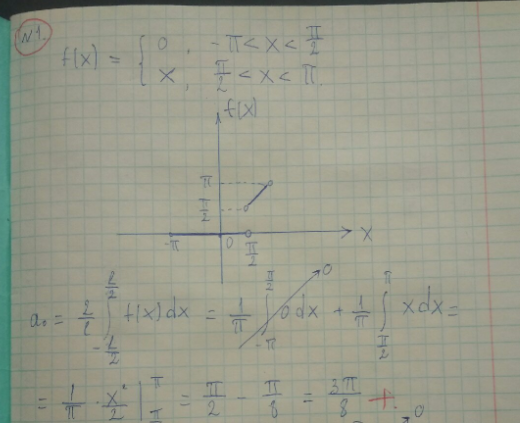 №1.
f(x) = { 0, -π < x < π/2
x, π/2 < x < π.
f(x)
π
π/2
-π 0 π/2 x
a₀ = 2/l ∫_{-l/2}^{l/2} f(x) dx = 1/π ∫_{-π}^{π/2} 0 dx → 0 + 1/π ∫_{π/2}^{π} x dx =
= 1/π · x²/2 |_{π/2}^{π} = π/2 - π/8 = 3π/8 +
0